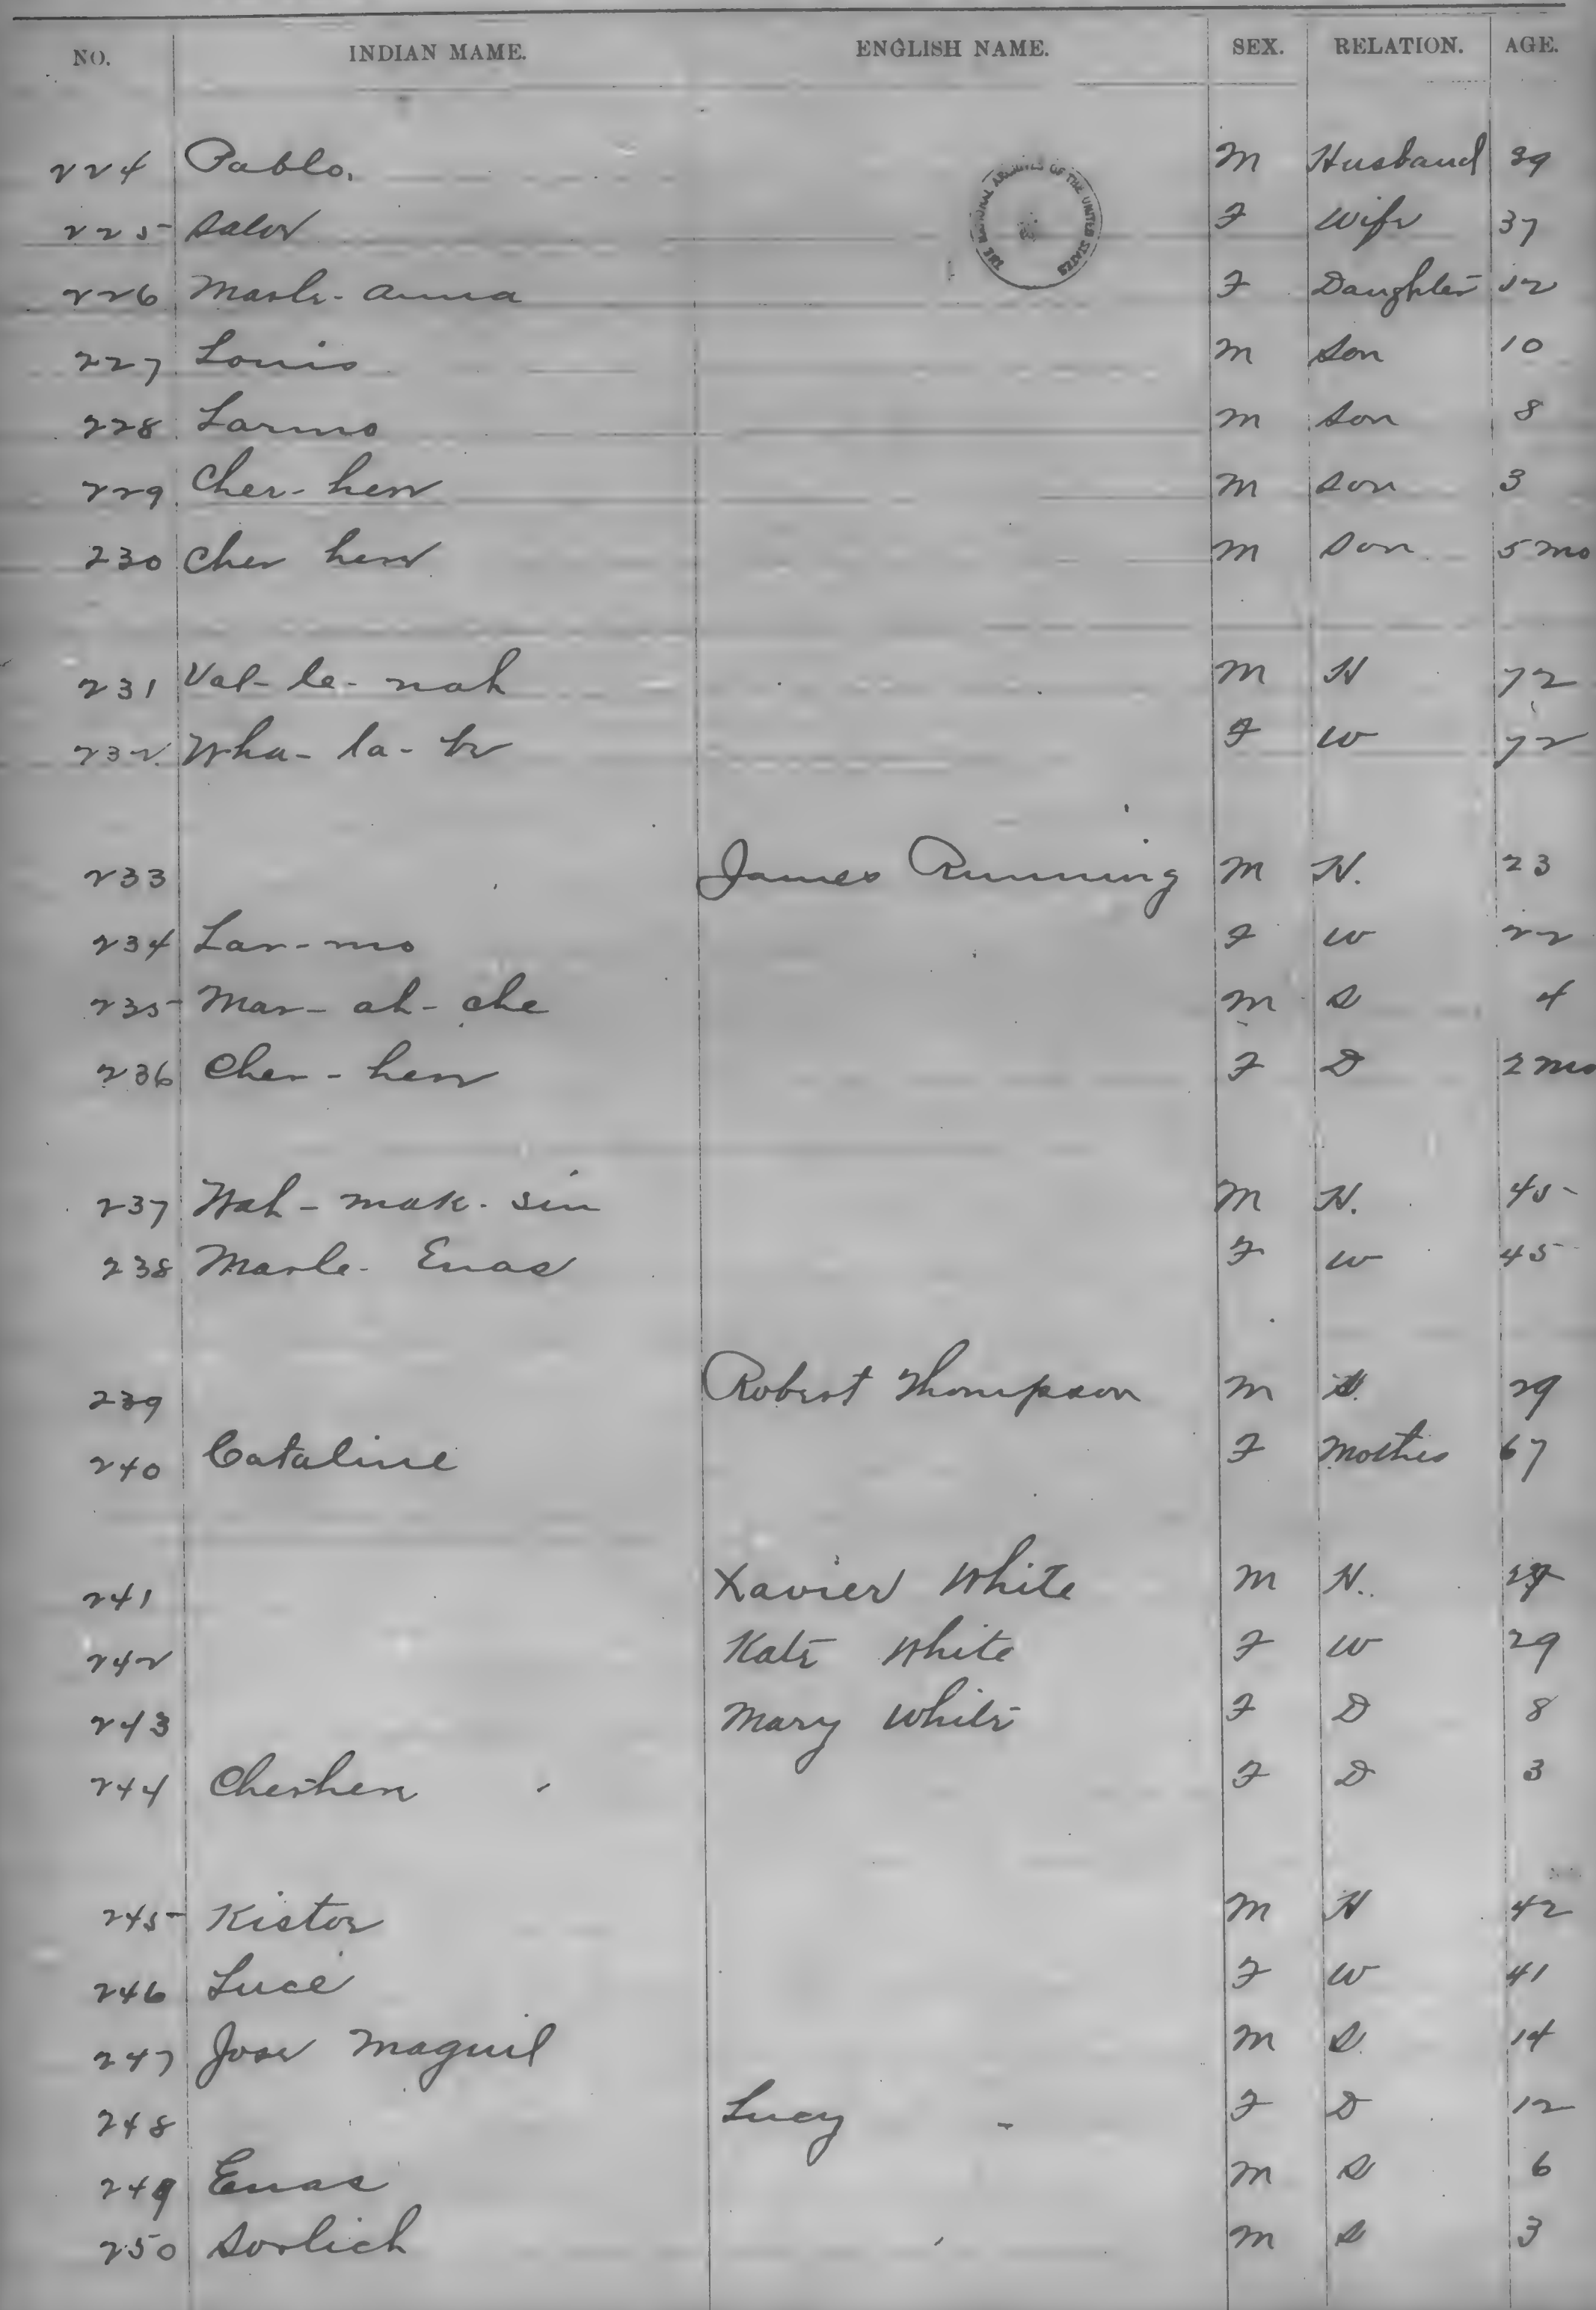 NO. INDIAN MAME. ENGLISH NAME. SEX. RELATION. AGE.
THE NATIONAL ARCHIVES OF THE UNITED STATES
224 Pablo. M Husband 39
225 Salor F Wife 37
226 Marle-Anna F Daughter 12
227 Louis M Son 10
228 Larmo M Son 8
229 Cher-hen M Son 3
230 Cher hen M Son 5 mo
231 Val-le-nah M H 72
232 Wha-la- F W 72
233 James Running M H. 23
234 Lar-mo F W 22
235 Mar-ah-che M S 4
236 Cher-hen F D 2 mo
237 Wah-mak-sin M H. 45
238 Marle-Enas F W 45
239 Robert Thompson M S. 29
240 Cataline F Mother 67
241 Xavier White M H.
242 Kate White F W 29
243 Mary White F D 8
244 Cherhen F D 3
245 Kistor M H 42
246 Luce F W 41
247 Jose Maguil M S. 14
248 Lucy F D 12
249 Enas M S 6
250 Sorlich M S 3